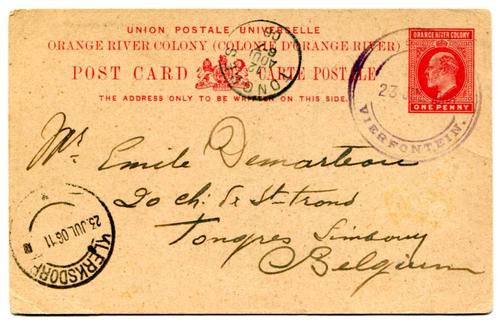 UNION POSTALE UNIVERSELLE
ORANGE RIVER COLONY (COLONIE D'ORANGE RIVER)
POST CARD CARTE POSTALE
THE ADDRESS ONLY TO BE WRITTEN ON THIS SIDE.
ORANGE RIVER COLONY
ONE PENNY
23
VIERFONTEIN.
Mr Emile Demarteau
20 ch: de St-trond
Tongres Limbourg
Belgium
KLERKSDORP
23 JUL 06 11